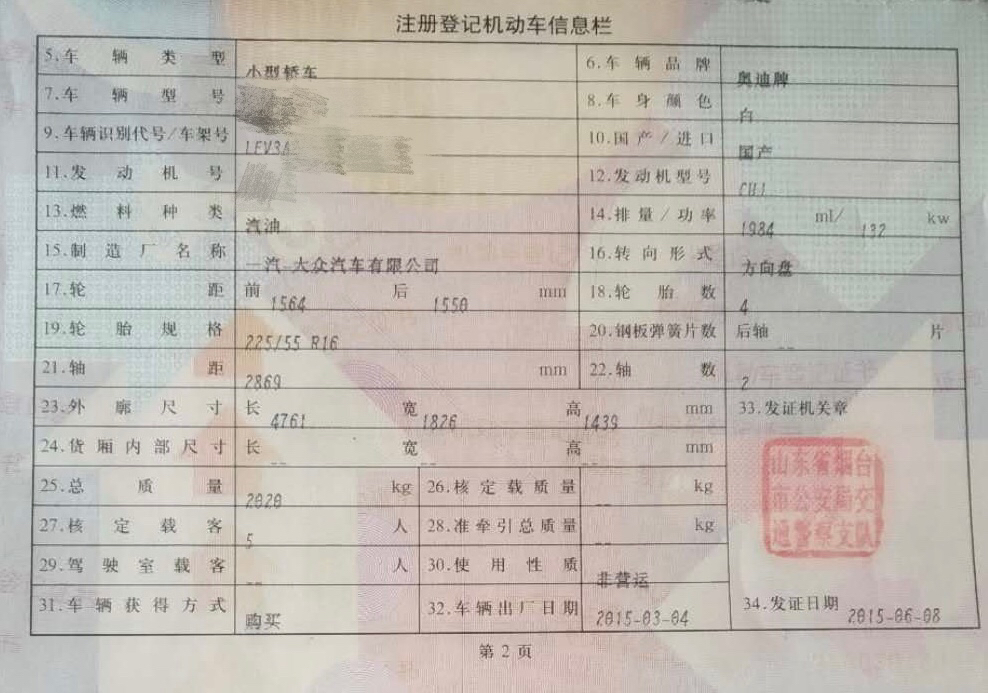 注册登记机动车信息栏
5.车辆类型 小型轿车 6.车辆品牌 奥迪牌
7.车辆型号 8.车身颜色 白
9.车辆识别代号/车架号 LFV3A 10.国产/进口 国产
11.发动机号 12.发动机型号 CUJ
13.燃料种类 汽油 14.排量/功率 1984 ml/ 132 kw
15.制造厂名称 一汽-大众汽车有限公司 16.转向形式 方向盘
17.轮距 前 1564 后 1550 mm 18.轮胎数 4
19.轮胎规格 225/55 R16 20.钢板弹簧片数 后轴 -- 片
21.轴距 2869 mm 22.轴数 2
23.外廓尺寸 长 4761 宽 1826 高 1439 mm 33.发证机关章
24.货厢内部尺寸 长 -- 宽 -- 高 -- mm
25.总质量 2020 kg 26.核定载质量 -- kg
27.核定载客 5 人 28.准牵引总质量 -- kg
29.驾驶室载客 -- 人 30.使用性质 非营运
31.车辆获得方式 购买 32.车辆出厂日期 2015-03-04 34.发证日期 2015-06-08
山东省烟台
市公安局交
通警察支队
第2页